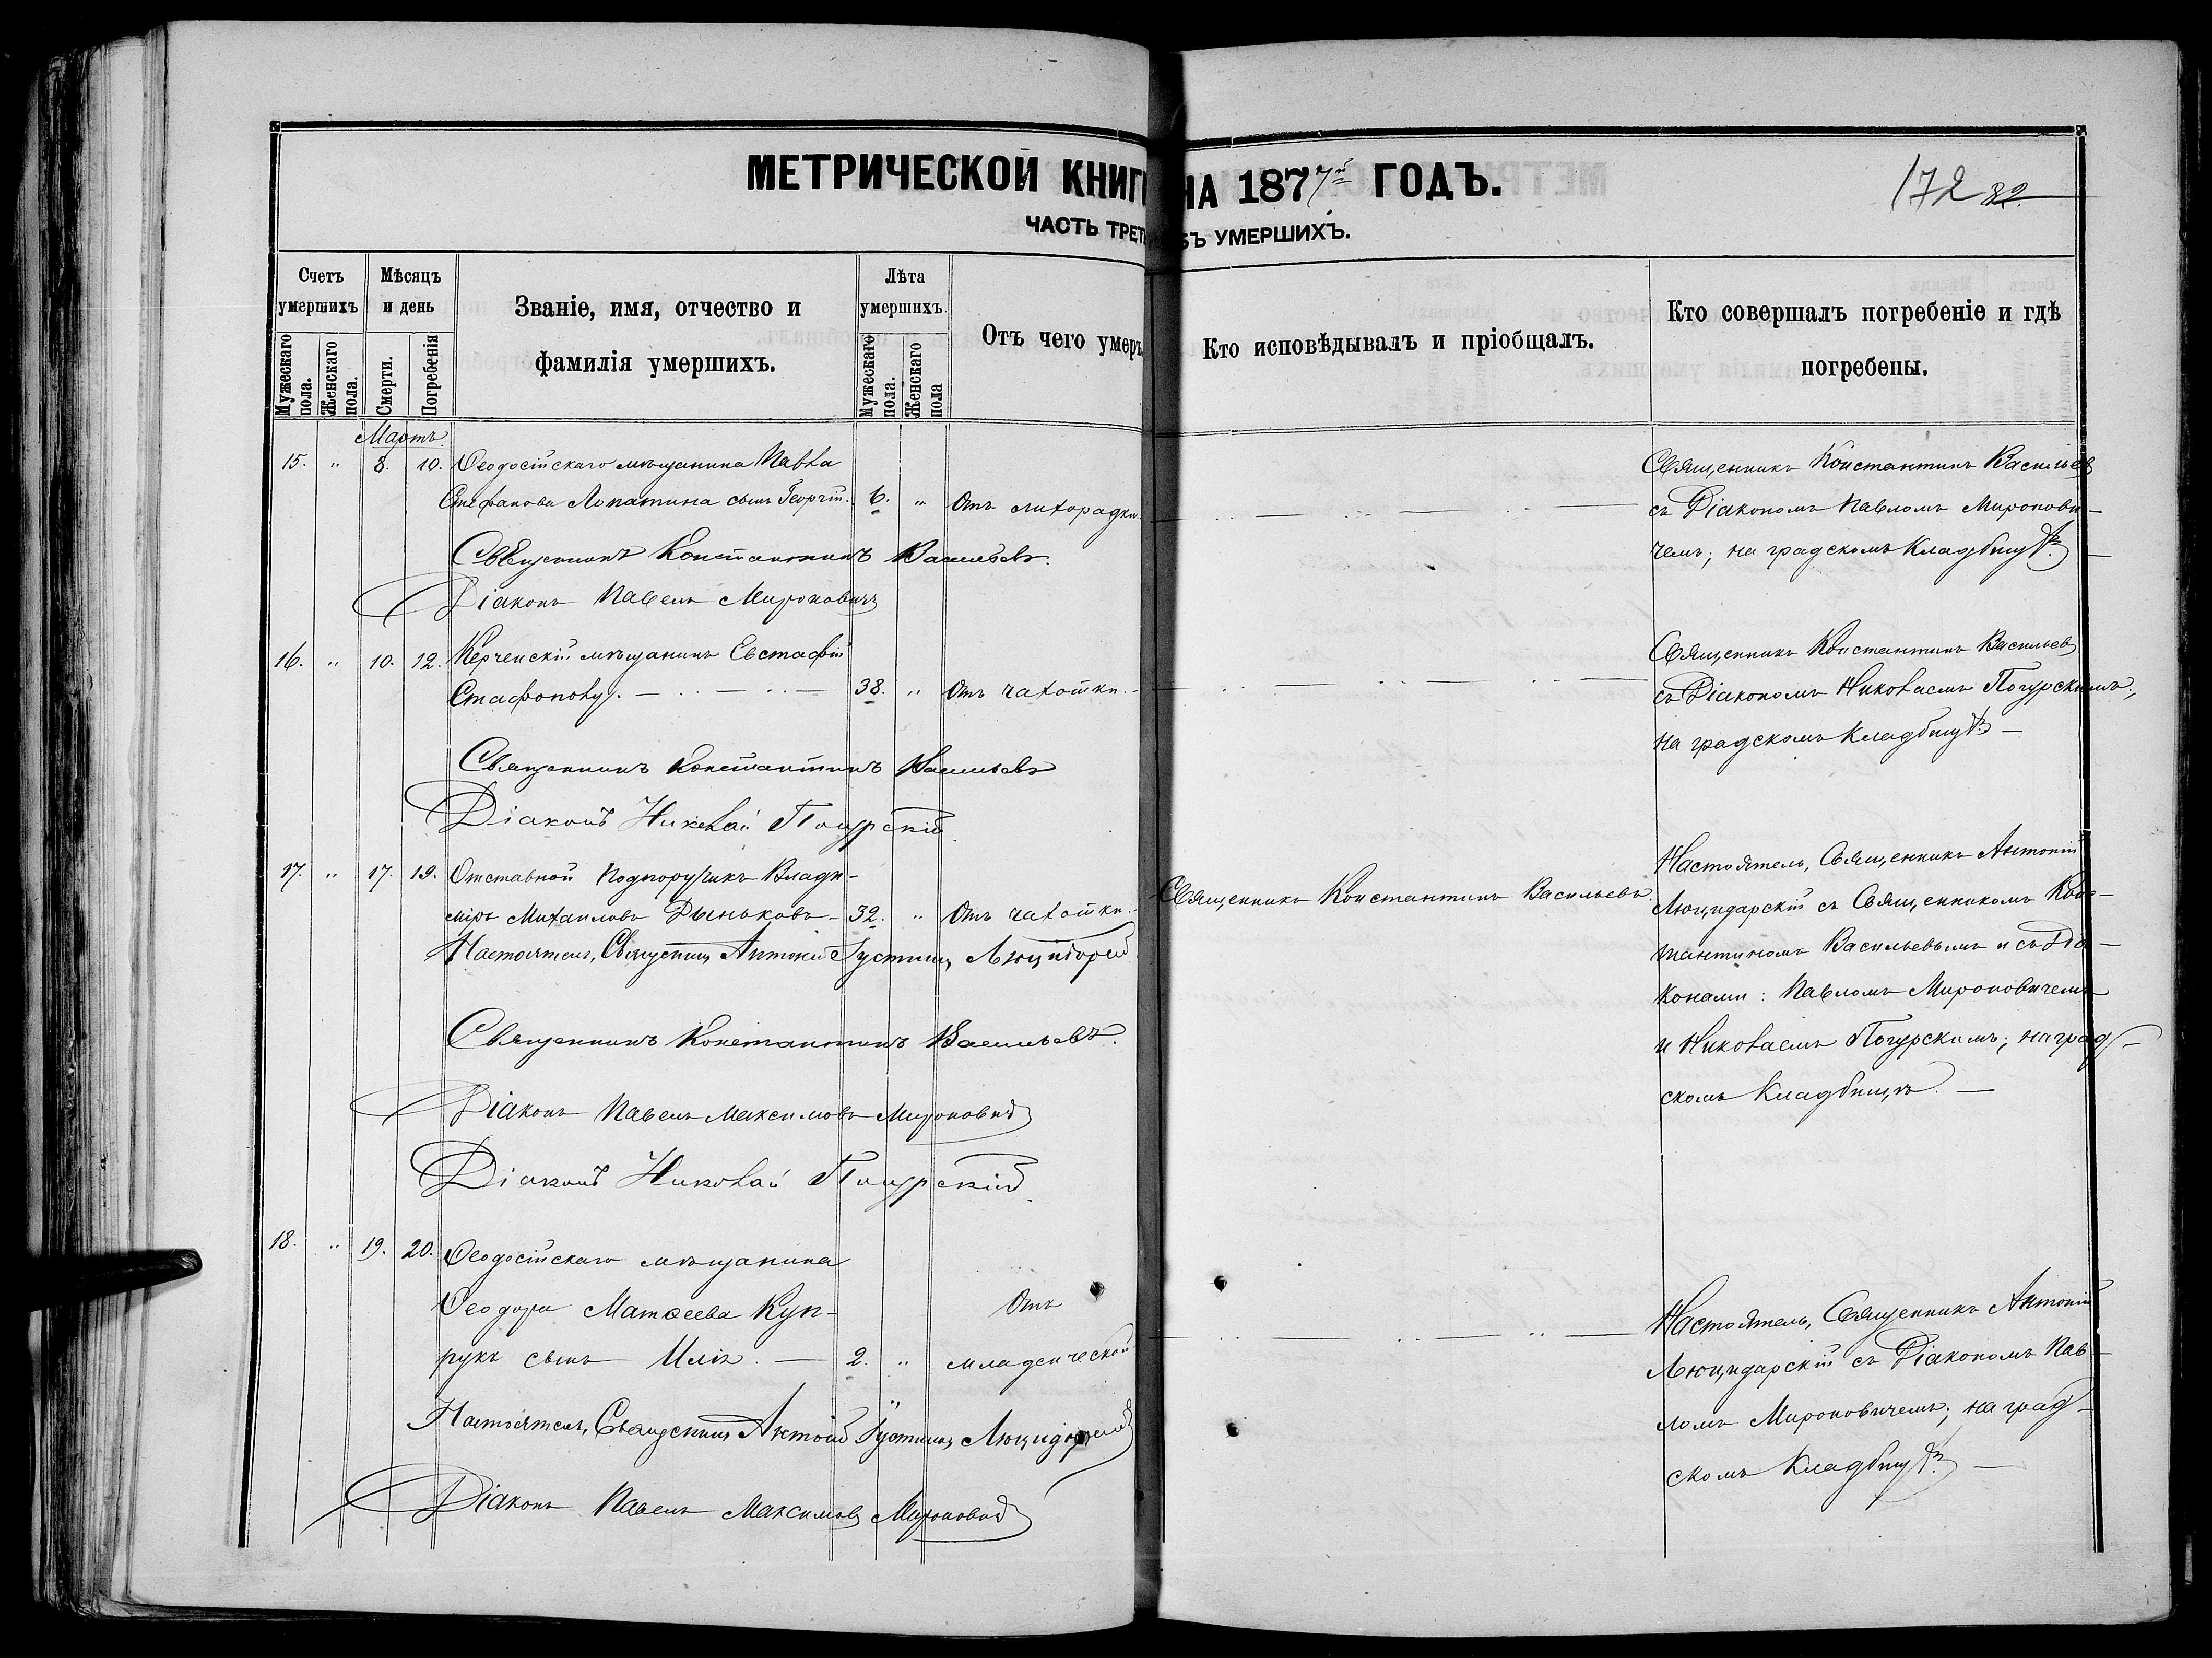 МЕТРИЧЕСКОЙ КНИГ НА 1877й ГОДЪ.
172 82.
ЧАСТЬ ТРЕТ БЪ УМЕРШИХЪ.
Счетъ умершихъ
Мужескаго пола.
Женскаго пола.
Мѣсяцъ и день
Смерти.
Погребенія
Званіе, имя, отчество и
фамилія умершихъ.
Лѣта умершихъ.
Мужескаго пола.
Женскаго пола
Отъ чего умеръ
Кто исповѣдывалъ и пріобщалъ.
Кто совершалъ погребеніе и гдѣ
погребены.
Мартъ.
15. " 8. 10. Ѳеодосійскаго мѣщанина Павла
Стефанова Лопатина сынъ Георгій. 6. " Отъ лихорадки.
Священникъ Константинъ Васильевъ
съ Діакономъ Павломъ Миронови-
чемъ; на градскомъ кладбищѣ. —
Священникъ Константинъ Васильевъ.
Діаконъ Павелъ Мироновичъ
16. " 10. 12. Керченскій мѣщанинъ Евстафій
38. " Отъ чахотки. —
Священникъ Константинъ Васильевъ
съ Діакономъ Николаемъ Погурскимъ;
на градскомъ кладбищѣ —
Священникъ Константинъ Васильевъ
Діаконъ Николай Погурскій.
17. " 17. 19. Отставной Подпоручикъ Влади-
міръ Михаиловъ Дыньковъ — 32. " Отъ чахотки. —
Священникъ Константинъ Васильевъ.
Настоятель, Священникъ Антоній
Люцидарскій съ Священникомъ Конс-
тантиномъ Васильевымъ и съ Діа-
конами: Павломъ Мироновичемъ
и Николаемъ Погурскимъ; на град-
скомъ кладбищѣ. —
Настоятель, Священникъ Антоній
Священникъ Константинъ Васильевъ.
Діаконъ Павелъ Максимовъ Мироновичъ
Діаконъ Николай Погурскій.
18. " 19. 20. Ѳеодосійскаго мѣщанина
Ѳеодора Матѳеева Куп-
рукъ сынъ Илія. — 2. " Отъ младенческой
Настоятель, Священникъ Антоній
Люцидарскій съ Діакономъ Пав-
ломъ Мироновичемъ; на град-
скомъ кладбищѣ. —
Настоятель, Священникъ Антоній
Діаконъ Павелъ Максимовъ Мироновичъ